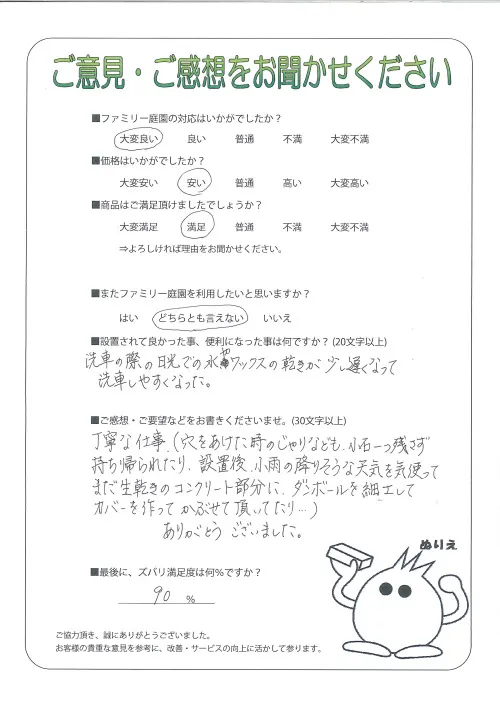 ご意見・ご感想をお聞かせください
■ファミリー庭園の対応はいかがでしたか？
大変良い 良い 普通 不満 大変不満
■価格はいかがでしたか？
大変安い 安い 普通 高い 大変高い
■商品はご満足頂けましたでしょうか？
大変満足 満足 普通 不満 大変不満
⇒よろしければ理由をお聞かせください。
■またファミリー庭園を利用したいと思いますか？
はい どちらとも言えない いいえ
■設置されて良かった事、便利になった事は何ですか？(20文字以上)
洗車の際の日光での水やワックスの乾きが少し遅くなって
洗車しやすくなった。
■ご感想・ご要望などをお書きくださいませ。(30文字以上)
丁寧な仕事。(穴をあけた時のじゃりなども、小石一つ残さず
持ち帰られたり、設置後、小雨の降りそうな天気を気使って
まだ生乾きのコンクリート部分に、ダンボールを細工して
カバーを作って かぶせて頂いてたり…)
ありがとう ございました。
ぬりえ
■最後に、ズバリ満足度は何％ですか？
90 ％
ご協力頂き、誠にありがとうございました。
お客様の貴重な意見を参考に、改善・サービスの向上に活かして参ります。